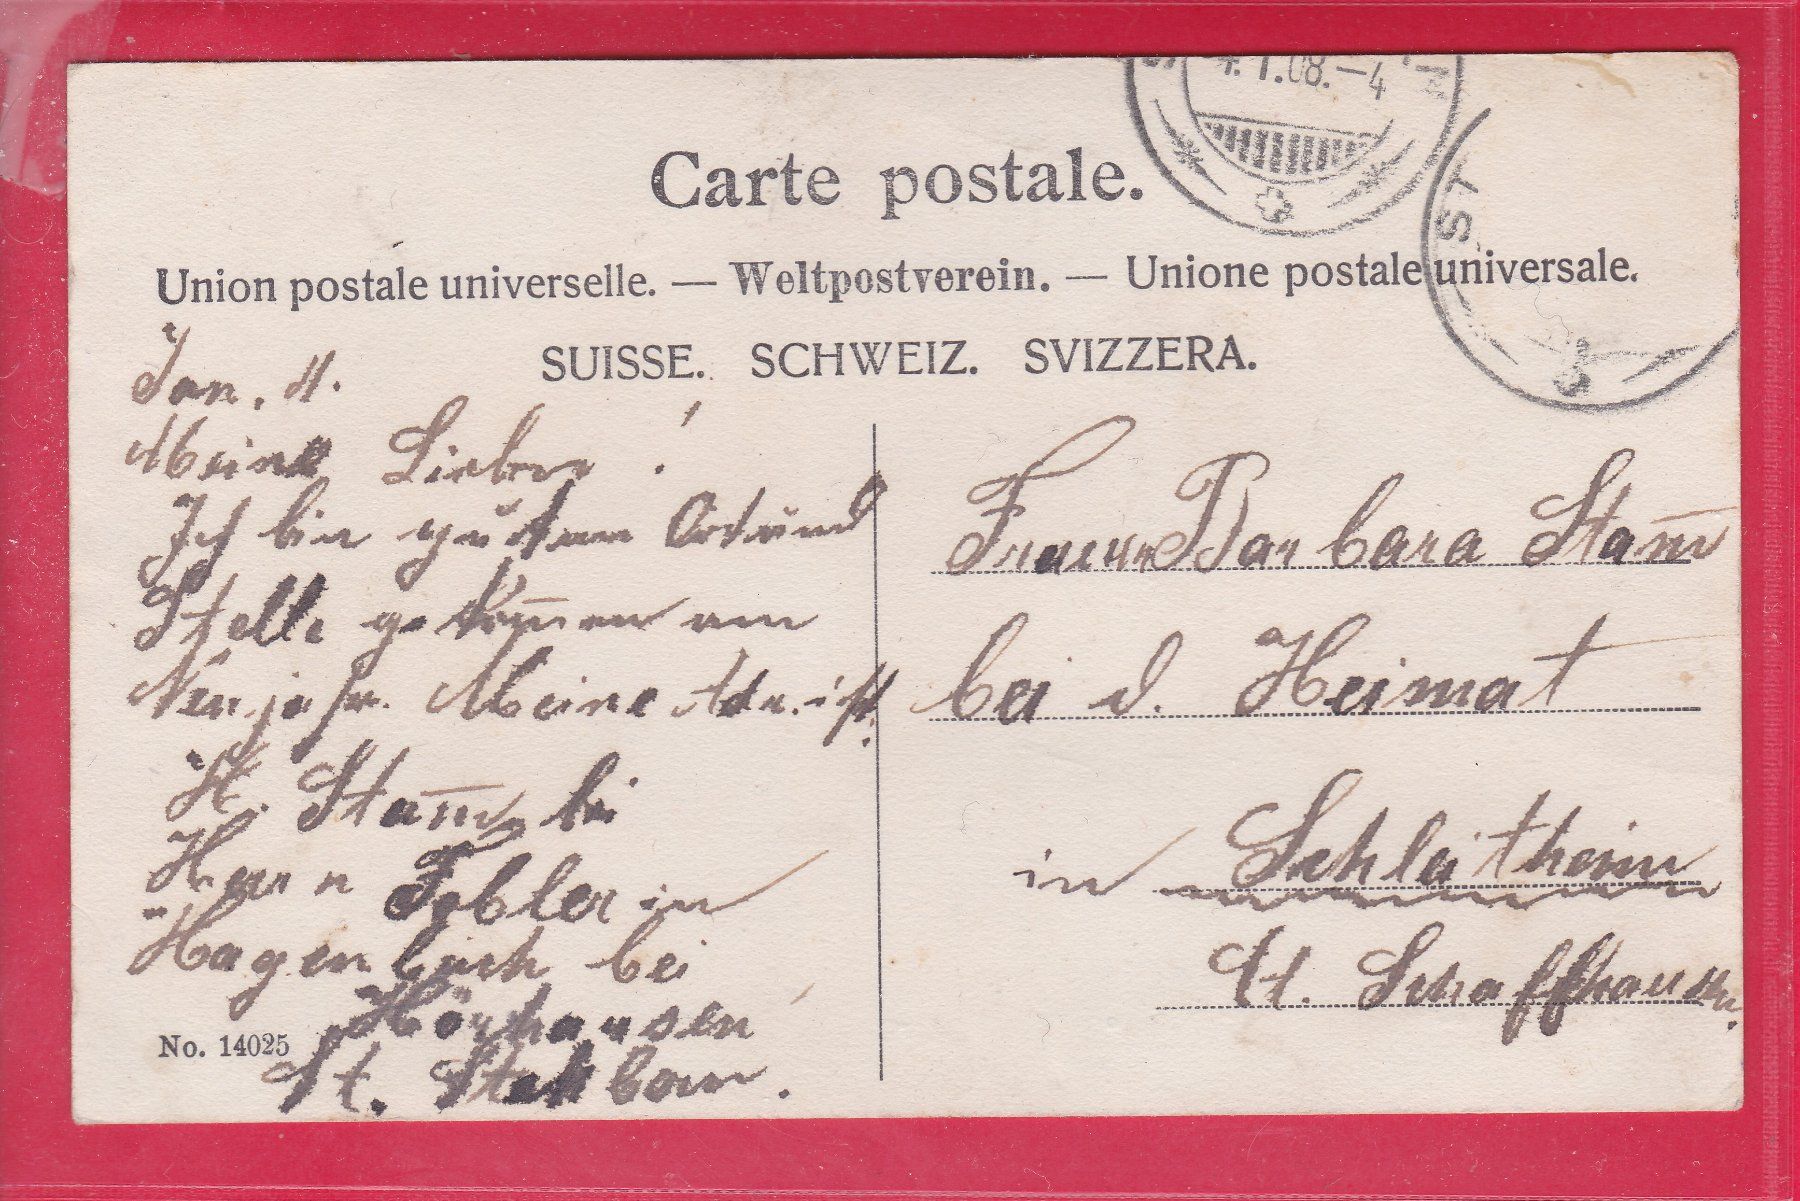 4.1.08.–4
Carte postale.
ST
Union postale universelle. — Weltpostverein. — Unione postale universale.
SUISSE. SCHWEIZ. SVIZZERA.
Jan. 4.
Meine Lieben!
Ich bin gutem Ort und
Stelle gekom̄en am
Neujahr. Meine Adr. ist
H. Stam̄ bei
Herrn in
Hagenbuch bei
Hörhausen
St. Steckborn.
No. 14025
Frau Barbara Stam̄
bei d. Heimat
in Schleitheim
Kt. Schaffhausen.